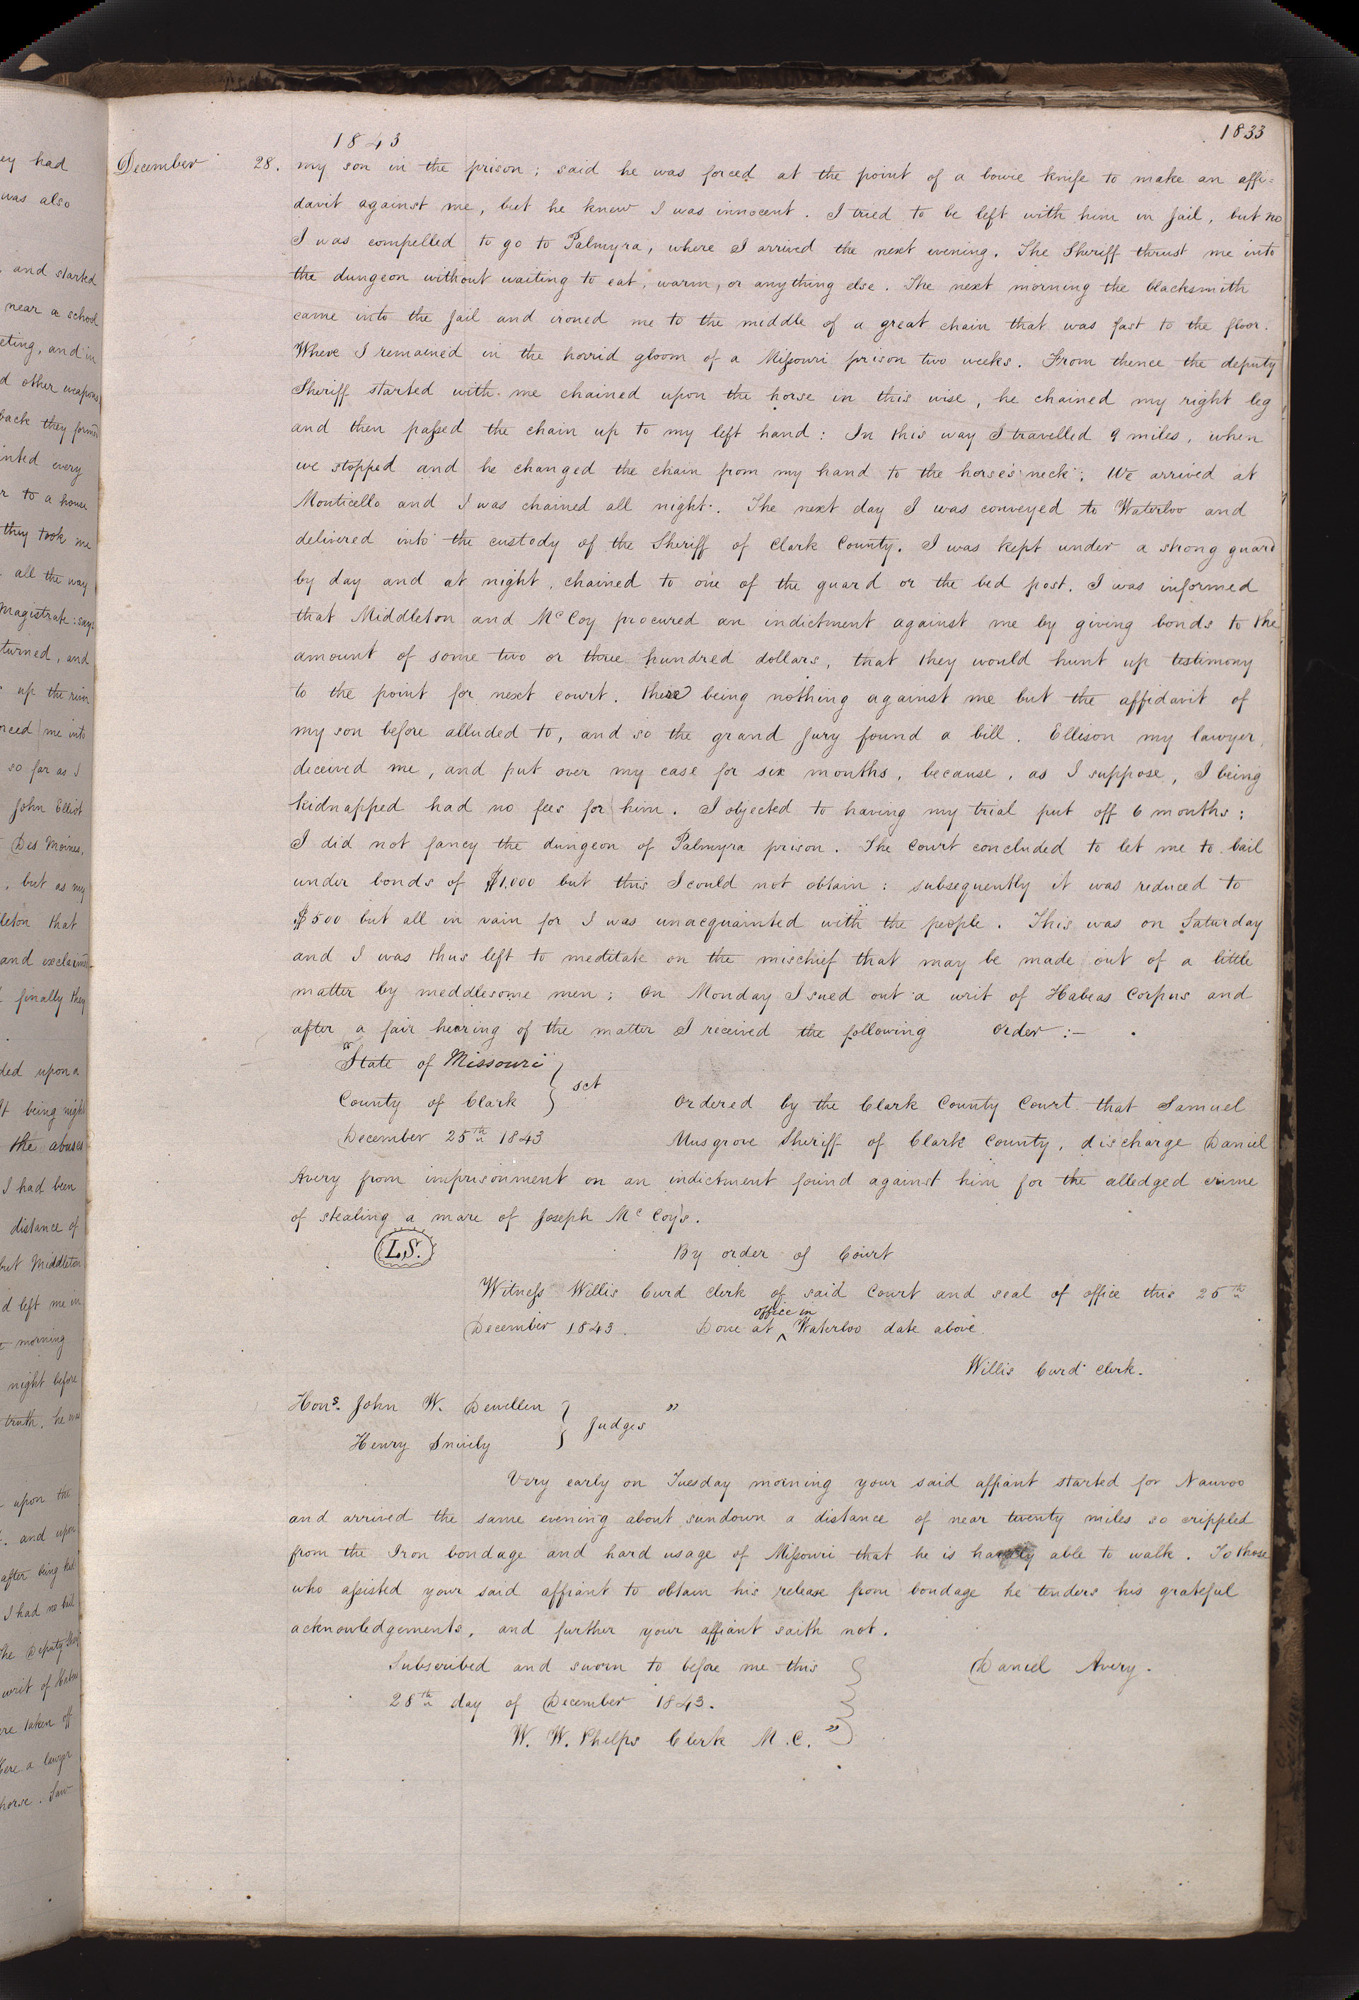 1833
1843
December 28. my son in the prison; said he was forced at the point of a bowie knife to make an affi=
davit against me, but he knew I was innocent. I tried to be left with him in Jail, but no
I was compelled to go to Palmyra, where I arrived the next evening. The Sheriff thrust me into
the dungeon without waiting to eat, warm, or anything else. The next morning the blacksmith
came into the Jail and ironed me to the middle of a great chain that was fast to the floor.
Where I remained in the horrid gloom of a Missouri prison two weeks. From thence the deputy
Sheriff started with me chained upon the horse in this wise, he chained my right leg
and then passed the chain up to my left hand: In this way I travelled 9 miles, when
we stopped and he changed the chain from my hand to the horse's neck; We arrived at
Monticello and I was chained all night. The next day I was conveyed to Waterloo and
delivered into the custody of the Sheriff of Clark County. I was kept under a strong guard
by day and at night, chained to one of the guard or the bed post. I was informed
that Middleton and McCoy procured an indictment against me by giving bonds to the
amount of some two or three hundred dollars, that they would hunt up testimony
to the point for next court. there being nothing against me but the affidavit of
my son before alluded to, and so the grand Jury found a bill. Ellison my lawyer,
deceived me, and put over my case for six months, because, as I suppose, I being
kidnapped had no fees for him. I objected to having my trial put off 6 months;
I did not fancy the dungeon of Palmyra prison. The Court concluded to let me to bail
under bonds of $1,000 but this I could not obtain: subsequently it was reduced to
$500 but all in vain for I was unacquainted with the people. This was on Saturday
and I was thus left to meditate on the mischief that may be made out of a little
matter by meddlesome men; On Monday I sued out a writ of Habeas Corpus and
after a fair hearing of the matter I received the following order:—
"State of Missouri }
County of Clark } sct Ordered by the Clark County Court that Samuel
December 25th 1843 Musgrove Sheriff of Clark County, discharge Daniel
Avery from imprisonment on an indictment found against him for the alledged crime
of stealing a mare of Joseph McCoy's.
L.S. By order of Court
Witness Willis Curd clerk of said Court and seal of office this 25th
December 1843. Done at office in Waterloo date above
Willis Curd clerk.
Hons. John W. Dewellen } Judges "
Henry Snively }
Very early on Tuesday morning your said affiant started for Nauvoo
and arrived the same evening about sundown a distance of near twenty miles so crippled
from the Iron bondage and hard usage of Missouri that he is hardly able to walk. To those
who assisted your said affiant to obtain his release from bondage he tenders his grateful
acknowledgements, and further your affiant saith not.
Subscribed and sworn to before me this } Daniel Avery.
28th day of December 1843.
W. W. Phelps Clerk M. C. "